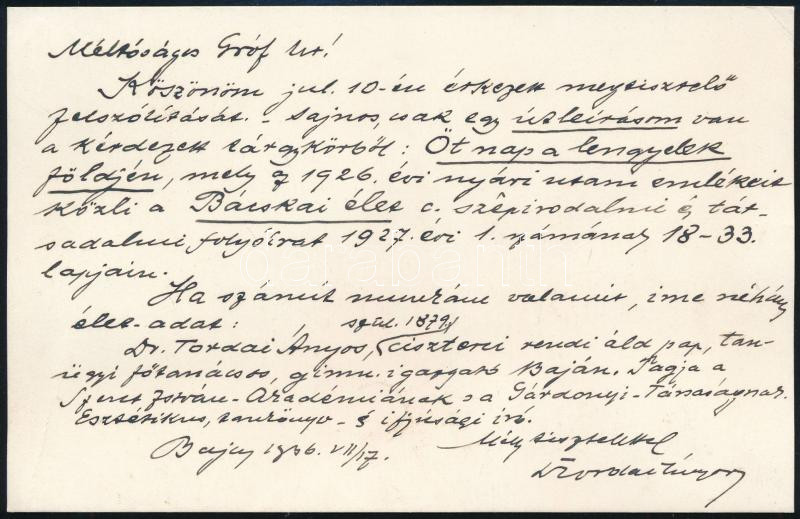 Méltóságos Gróf Úr!
Köszönöm jul. 10-én érkezett megtisztelő
felszólítását. – Sajnos, csak egy útleírásom van
a kérdezett tárgykörből: Öt nap a lengyelek
földjén, mely az 1926. évi nyári utam emlékeit
közli a Bácskai élet c. szépirodalmi és tár-
sadalmi folyóirat 1927. évi 1. számának 18–33.
lapjain.
Ha számít munkám valamit, ime néhány
élet-adat:
szül. 1879.
Dr. Tordai Ányos, ciszterci rendi áld. pap, tan-
ügyi főtanácsos, gimn. igazgató Baján. Tagja a
Szent István-Akadémiának s a Gárdonyi-Társaságnak.
Esztétikus, tankönyv- és ifjúsági író.
Mély tisztelettel
Baja, 1936. VII/17.
Dr Tordai Ányos
darabanth